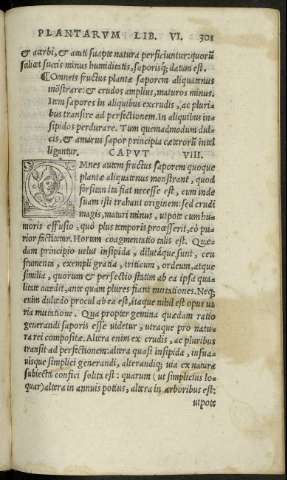 PLANTARVM LIB. VI. 301
& acerbi, & acuti suapte natura perficiuntur: quorũ
saliat succis minus humidis, saporisq; datum est.
Omnes fructus plantæ saporem aliquatenus
mõstrare: & crudos amplius, maturos minus.
Item sapores in aliquibus ex crudis, ac pluri
bus transire ad perfectionem. In aliquibus in
sipidos perdurare. Tum quemadmodum dul
cis, & amarus sapor principia cæterorũ intel
liguntur. CAPVT VIII.
OMnes autem fructus saporem quoque
plantæ aliquatenus monstrant, quod
forsitan ita fiat necesse est, cum inde
suam isti trahant originem: sed crudi
magis, maturi minus, utpote cum hu
moris effusio, quò plus temporis processerit, eò pu
rior fictatur. Horum coagmentatio talis est. Quæ
dam principio uelut insipida, dilutaque sunt, ceu
frumenta, exempli gratia, triticum, ordeum, atque
similia, quorum & perfectio statim ab ea ipsa qua
litate accidit, ante quàm plures fiant mutationes. Neq;
enim dulcedo procul ab ea est, itaque nihil est opus ua
ria mutatione. Qua propter gemina quædam ratio
generandi saporis esse uidetur, utraque pro natu
ra rei compositæ. Altera enim ex crudis, ac pluribus
transit ad perfectionem: altera quasi insipida, in sua
uisque simplici generandi, alterandiq; uia ex natura
subiecti confici solita est: quarum (ut simplicius lo
quar) altera in annuis potius, altera in arboribus est:
utpote